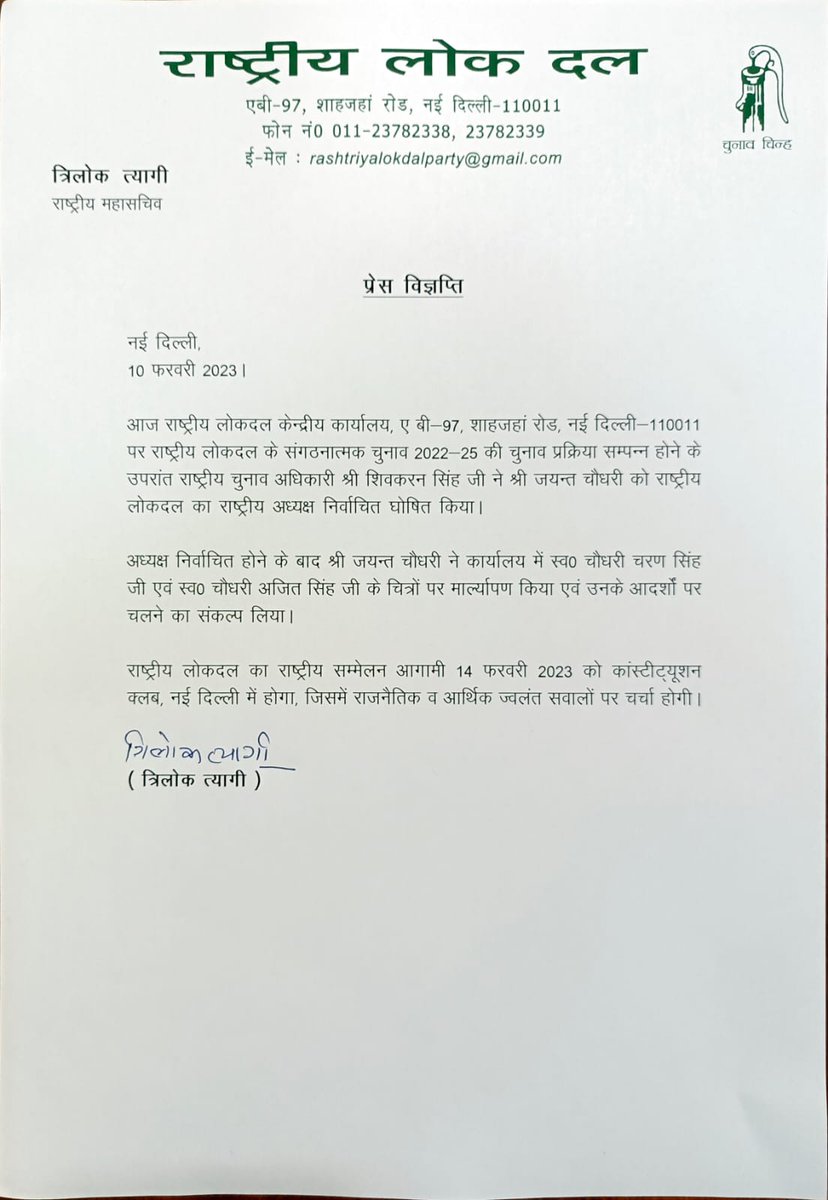 राष्ट्रीय लोक दल
एबी-97, शाहजहां रोड, नई दिल्ली-110011
फोन नं0 011-23782338, 23782339
ई-मेल : rashtriyalokdalparty@gmail.com
चुनाव चिन्ह
त्रिलोक त्यागी
राष्ट्रीय महासचिव
प्रेस विज्ञप्ति
नई दिल्ली,
10 फरवरी 2023।
आज राष्ट्रीय लोकदल केन्द्रीय कार्यालय, ए बी–97, शाहजहां रोड, नई दिल्ली–110011
पर राष्ट्रीय लोकदल के संगठनात्मक चुनाव 2022–25 की चुनाव प्रक्रिया सम्पन्न होने के
उपरांत राष्ट्रीय चुनाव अधिकारी श्री शिवकरन सिंह जी ने श्री जयन्त चौधरी को राष्ट्रीय
लोकदल का राष्ट्रीय अध्यक्ष निर्वाचित घोषित किया।
अध्यक्ष निर्वाचित होने के बाद श्री जयन्त चौधरी ने कार्यालय में स्व0 चौधरी चरण सिंह
जी एवं स्व0 चौधरी अजित सिंह जी के चित्रों पर मार्ल्यापण किया एवं उनके आदर्शों पर
चलने का संकल्प लिया।
राष्ट्रीय लोकदल का राष्ट्रीय सम्मेलन आगामी 14 फरवरी 2023 को कांस्टीट्यूशन
क्लब, नई दिल्ली में होगा, जिसमें राजनैतिक व आर्थिक ज्वलंत सवालों पर चर्चा होगी।
त्रिलोक त्यागी
( त्रिलोक त्यागी )